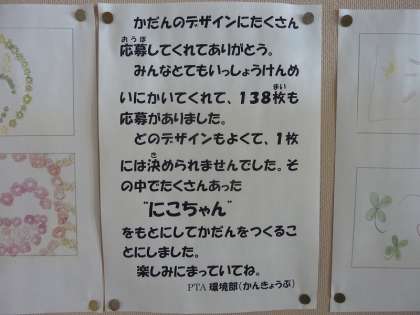 かだんのデザインにたくさん
応募してくれてありがとう。
みんなとてもいっしょうけんめ
いにかいてくれて、138枚も
応募がありました。
どのデザインもよくて、1枚
には決められませんでした。そ
の中でたくさんあった
"にこちゃん"
をもとにしてかだんをつくるこ
とにしました。
楽しみにまっていてね。
PTA 環境部(かんきょうぶ)